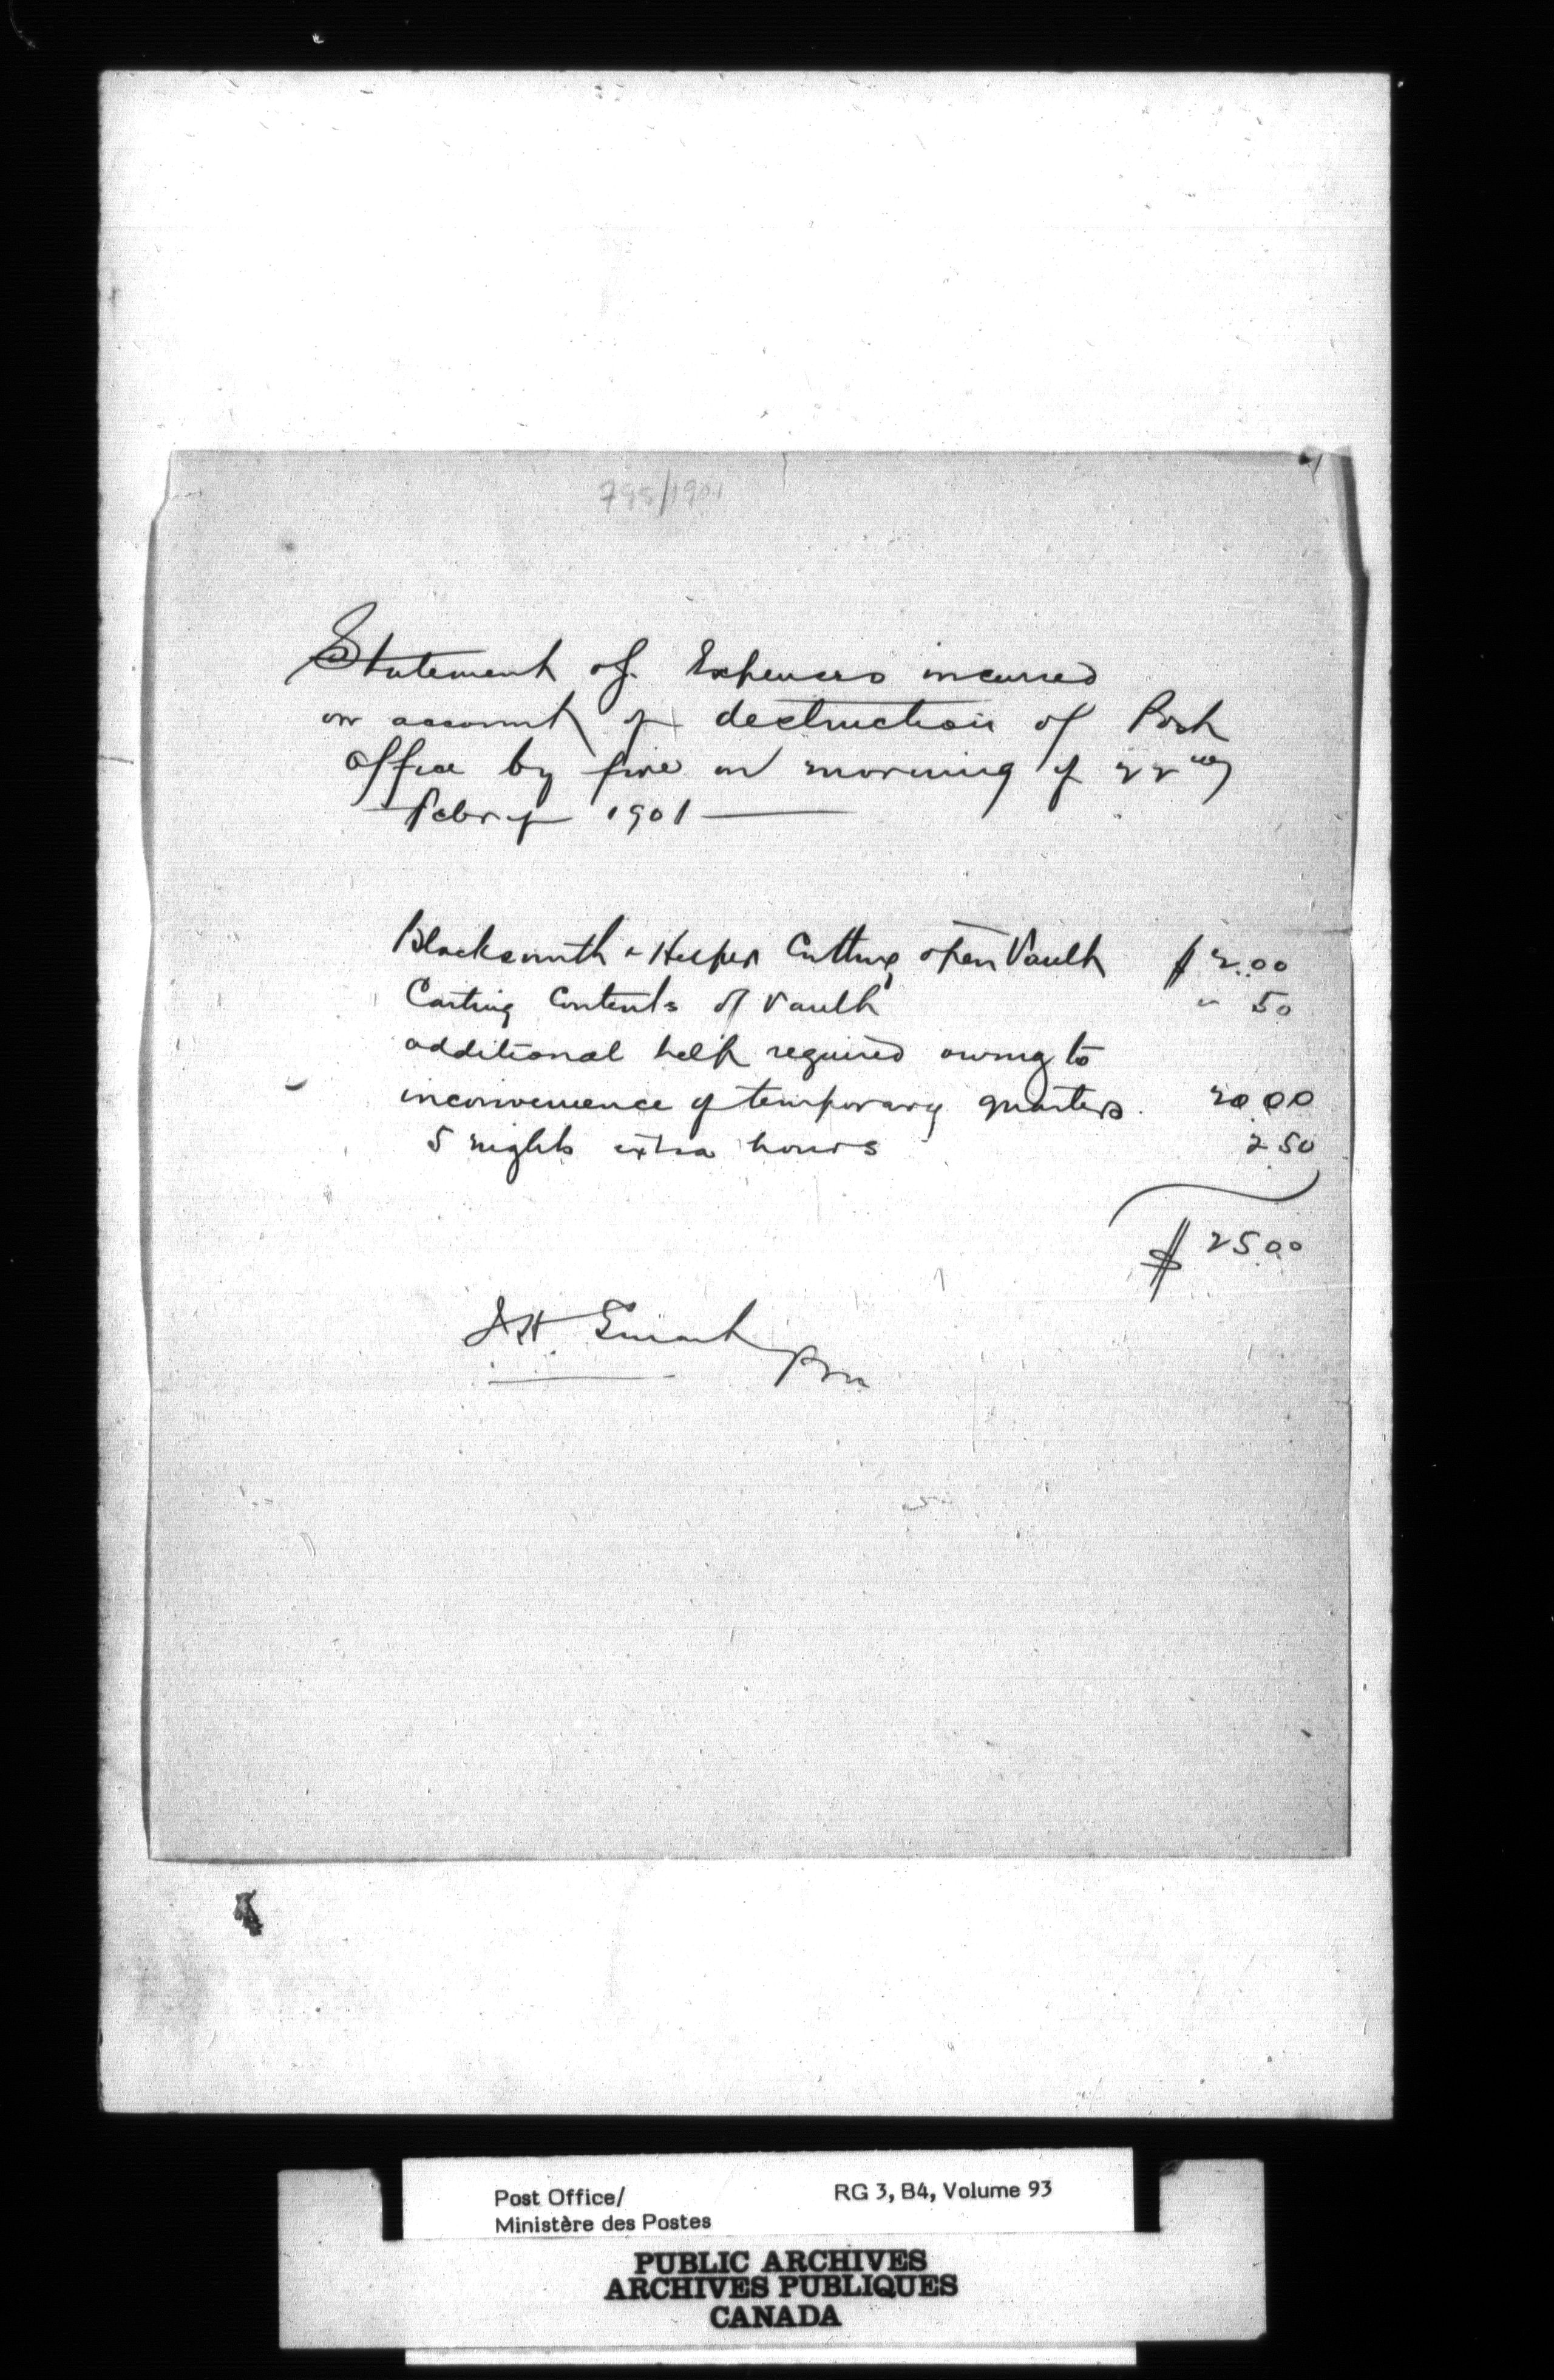 795/1901
Statement of Expenses incurred
on account of destruction of Post
office by fire on morning of 22nd
Febry 1901
Blacksmith & Helper Cutting open Vault $ 2.00
Carting Contents of Vault " 50
additional help required owing to
inconvenience of temporary quarters. 20.00
5 nights extra hours 2.50
$ 25.00
PM
Post Office/ RG 3, B4, Volume 93
Ministère des Postes
PUBLIC ARCHIVES
ARCHIVES PUBLIQUES
CANADA